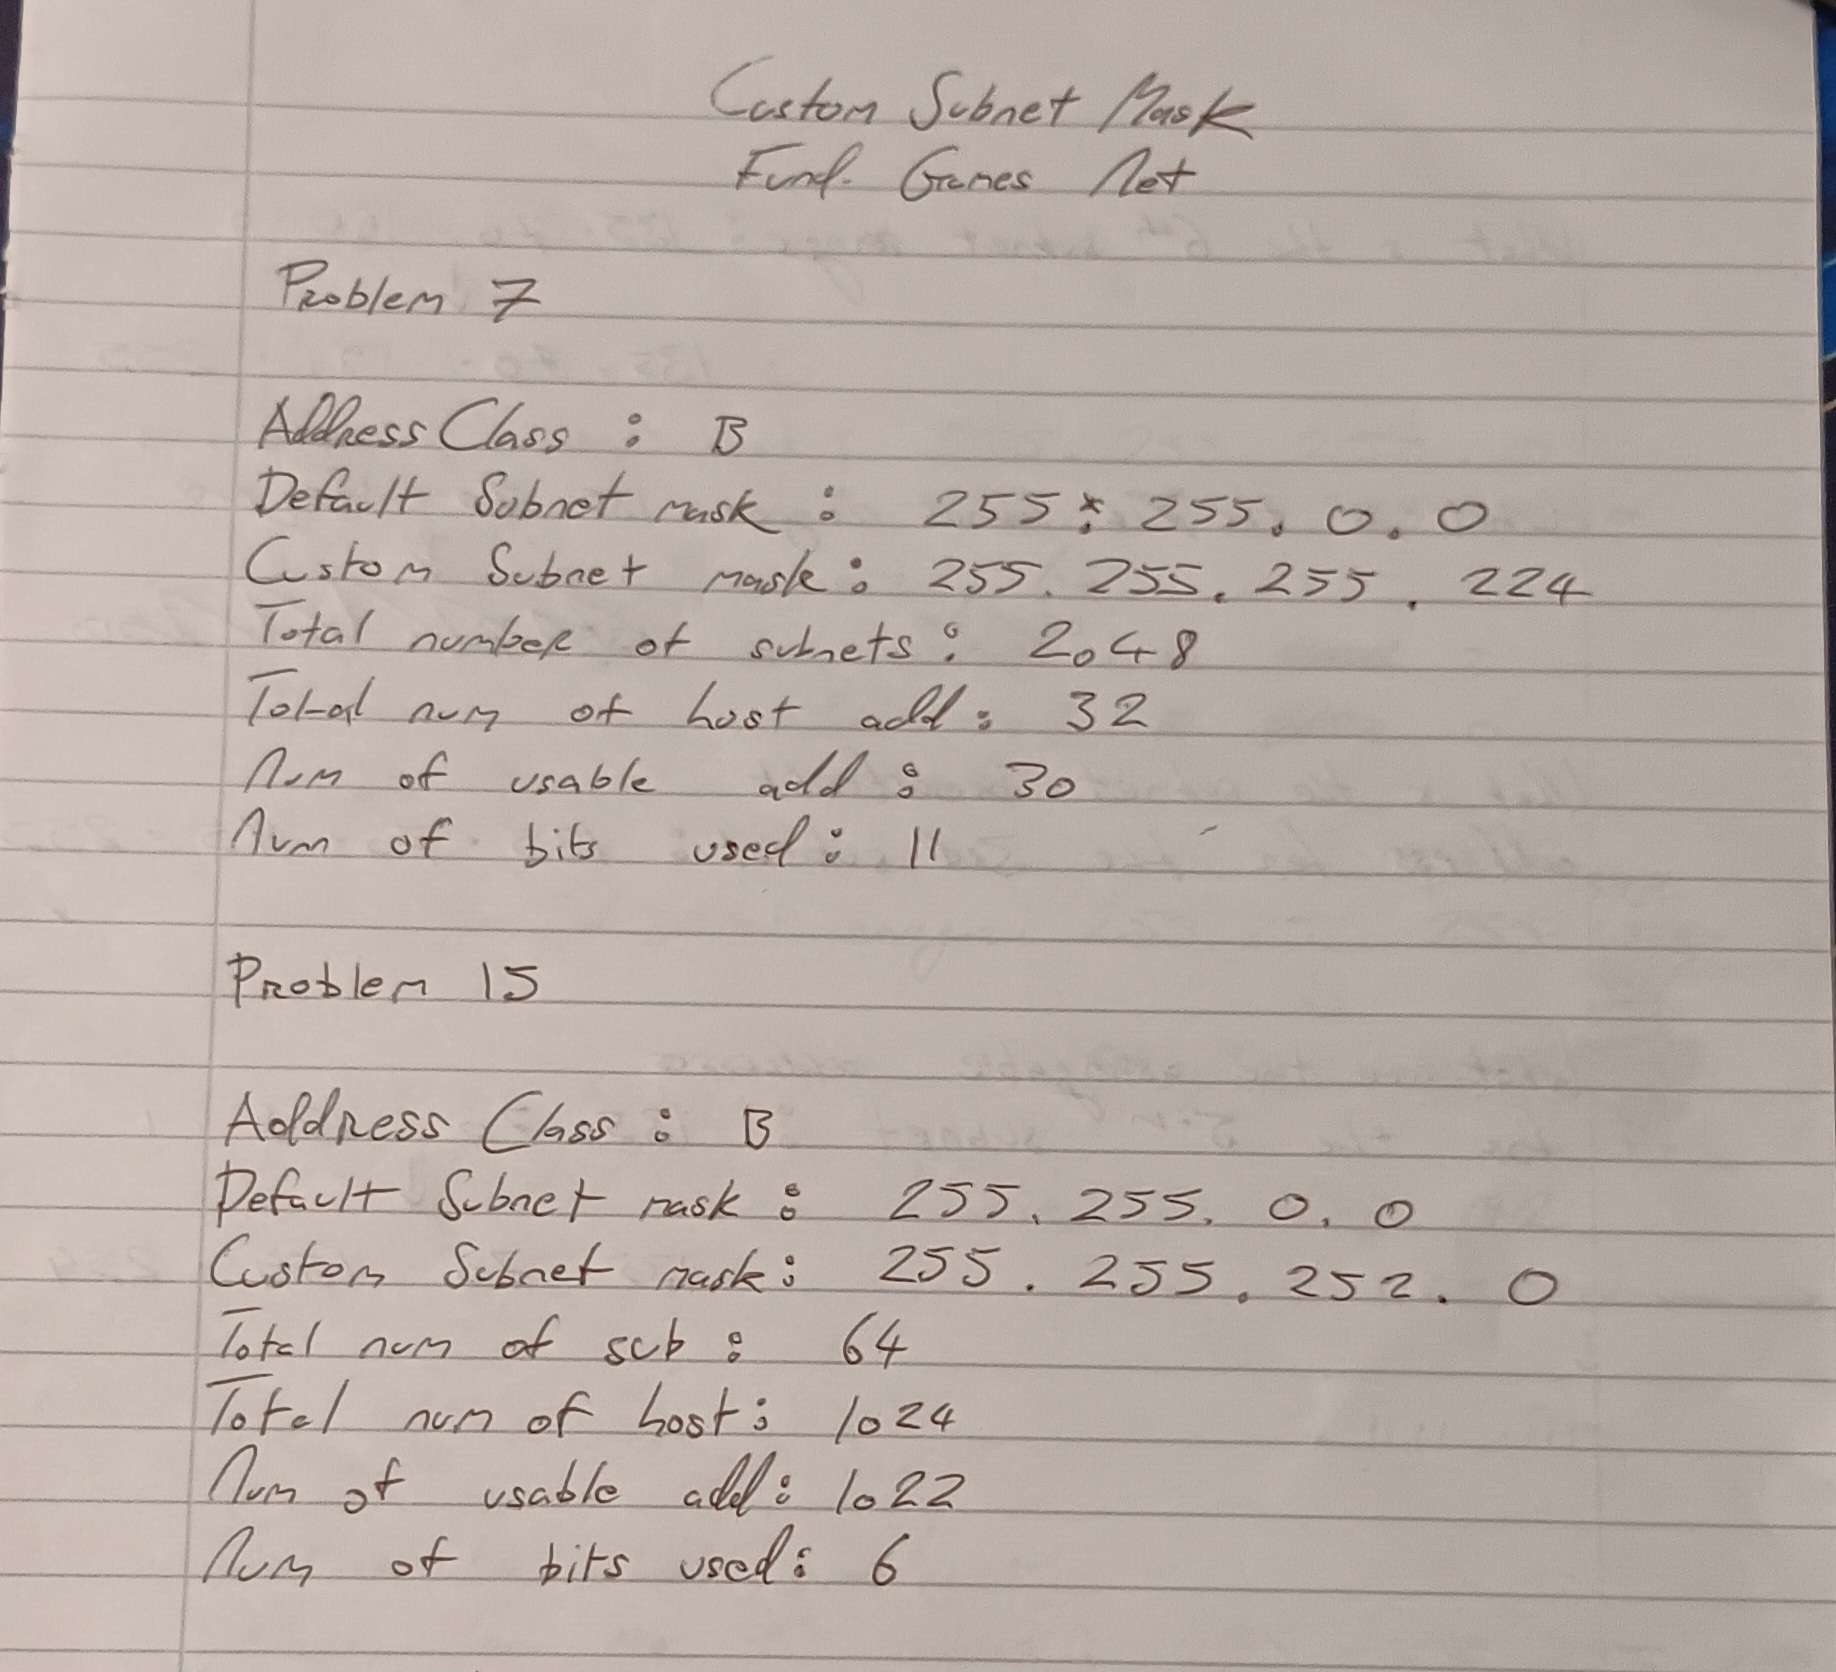 Custom Subnet Mask
Fund. Games Net
Problem 7
Address Class : B
Default Subnet mask : 255. 255. 0. 0
Custom Subnet mask : 255. 255. 255. 224
Total number of subnets : 2048
Total num of host add : 32
Num of usable add : 30
Num of bits used : 11
Problem 15
Address Class : B
Default Subnet mask : 255. 255. 0. 0
Custom Subnet mask : 255. 255. 252. 0
Total num of sub : 64
Total num of host : 1024
Num of usable add : 1022
Num of bits used : 6